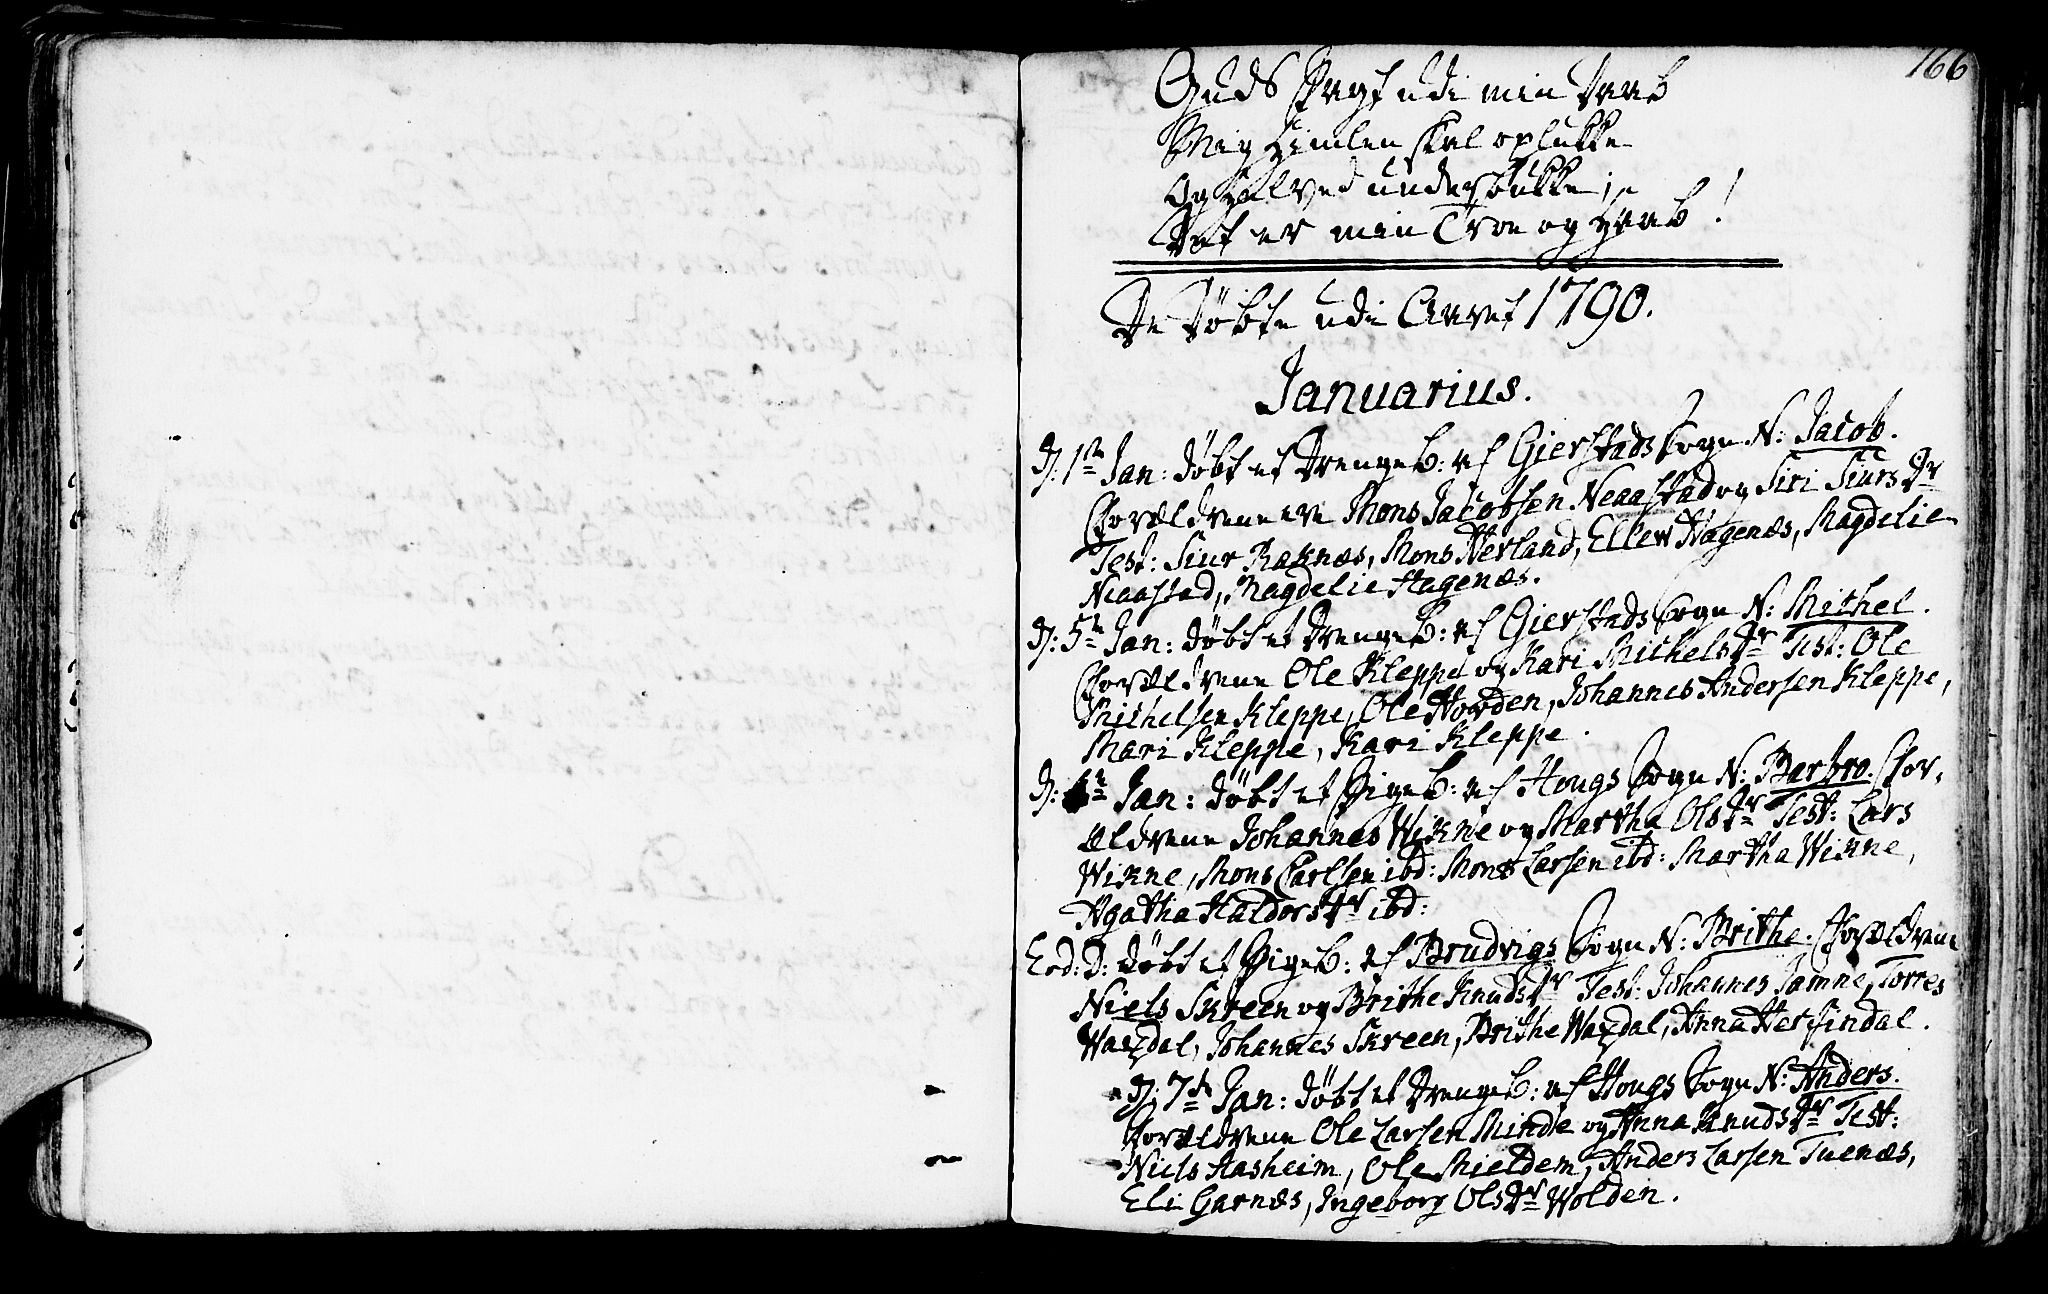 166
Guds Pagt udi min Daab
Mig Himlen skal oplukke
Og Helved undertrykke
Det er min Troe og Haab!
De Døbte udi Aaret 1790.
Januarius.
D: 1te Jan: døbt et Drengeb: af Gierstads Sogn N: Jacob.
Forældrene ere Mons Jacobsen Neaastad og Siri Siurs Dr
Test: Siur Raknæs, Mons Herland, Ellen Hagenæs, Magdelie
Neaastad, Magdelie Hagenæs.
D: 5te Jan: døbt et Drengeb: af Gierstads Sogn N: Michel.
Forældrene Ole Kleppe og Kari Michels Dr Test: Ole
Michelsen Kleppe, Ole Horden, Johannes Andersen Kleppe,
Mari Kleppe, Kari Kleppe.
D: 6te Jan: døbt et Pigeb: af Hougs Sogn N: Barbro. For-
ældrene Johannes Wikne og Martha Ols Dr Test: Lars
Wikne, Mons Carlsen ibd: Mons Larsen ibd: Martha Wikne,
Agatha Haldors Dr ibd:
Eod: D: døbt et Pigeb: af Brudvigs Sogn N: Brithe. Forældrene
Niels Skreen og Brithe Knuds Dr Test: Johannes Jamne, Torres
Waxdal, Johannes Skreen, Brithe Waxdal, Anna Herfindal.
D: 7de Jan: døbt et Drengeb: af Hougs Sogn N: Anders.
Forældrene Ole Larsen Minde og Anna Knuds Dr Test:
Niels Aasheim, Ole Mieldem, Anders Larsen Tuenæs,
Eli Garnæs, Ingeborg Ols Dr Wolden.